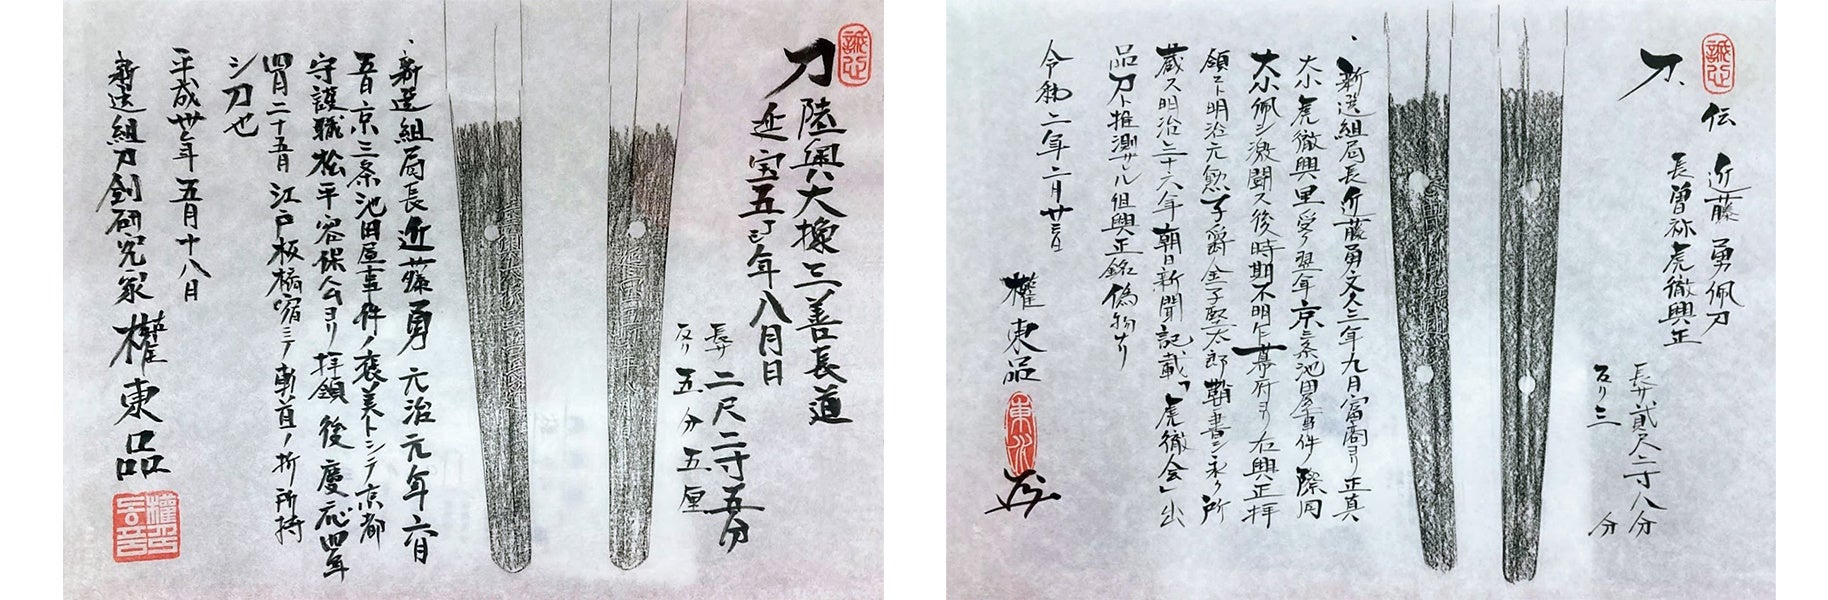 刀 陸奥大掾三善長道
延宝五丁巳年八月日
長サ 二尺二寸五分
反リ 五分五厘
新選組局長近藤勇 元治元年六月
五日京三条池田屋事件ノ褒美トシテ京都
守護職松平容保公ヨリ拝領 後慶応四年
四月二十五日江戸板橋宿ニテ斬首ノ折所持
シ刀也
平成卅年五月十八日
新选組刀剣研究家 權東品
刀
伝 近藤勇佩刀
長曽祢虎徹興正
長サ貳尺二寸八分
反リ三分
新選組局長近藤勇文久三年九月富商ヨリ正真
大小虎徹興里受ケ翌年京三条池田屋事件ノ際同
大小佩シ激闘ス後時期不明乍幕府ヨリ右興正拝
領スト明治元勲子爵金子堅太郎鞘書シ永ク所
蔵ス明治三十六年朝日新聞記載「虎徹会」出
品刀ト推測サル但興正銘偽物ナリ
令和二年二月廿三日
權東品